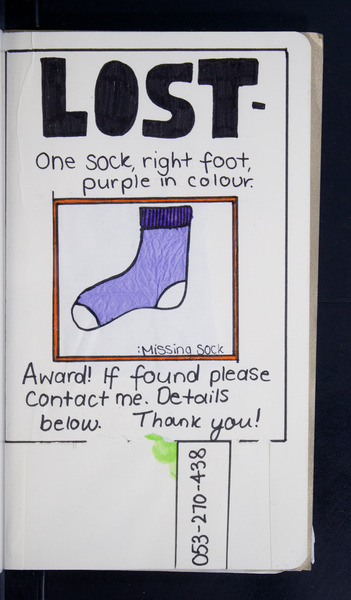 LOST-
One sock, right foot,
purple in colour.
:Missing Sock
Award! If found please
contact me. Details
below. Thank you!
053-270-438